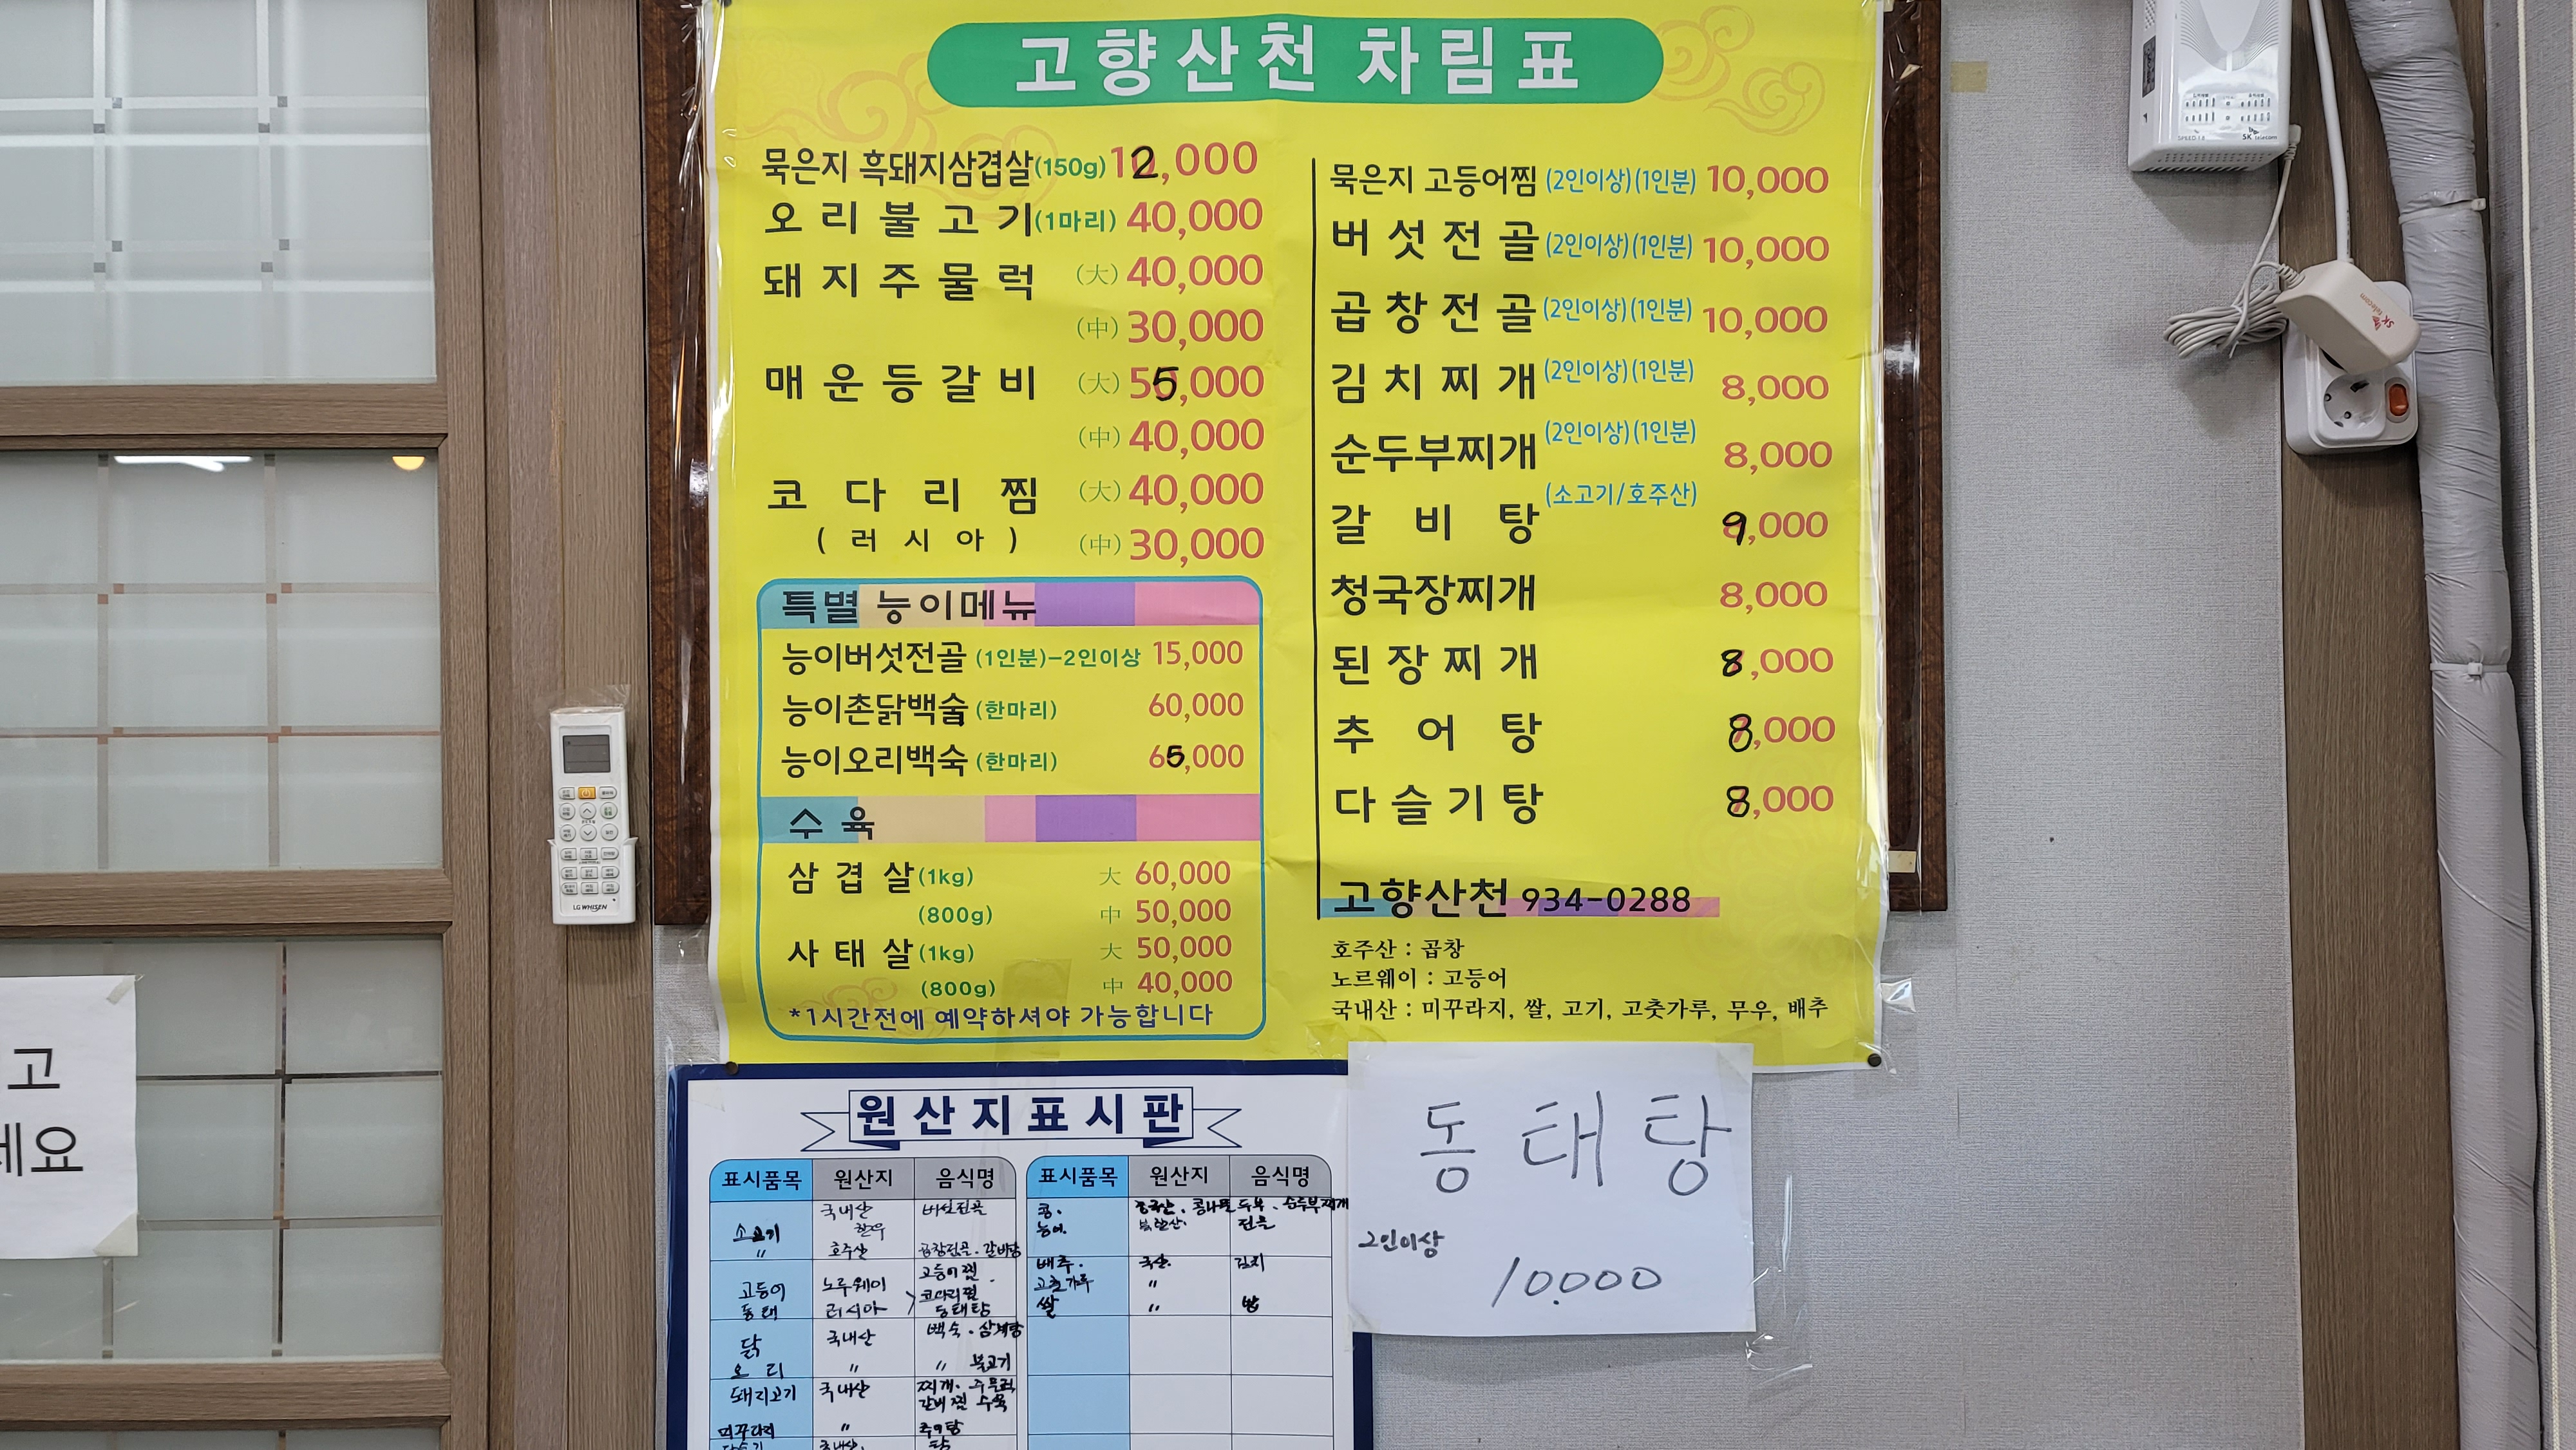 고향산천 차림표
묵은지 흑돼지삼겹살(150g) 12,000
오리불고기(1마리) 40,000
돼지주물럭 (大) 40,000
(中) 30,000
매운등갈비 (大) 55,000
(中) 40,000
코다리찜 (大) 40,000
(러시아) (中) 30,000
특별 능이메뉴
능이버섯전골 (1인분)-2인이상 15,000
능이촌닭백숙 (한마리) 60,000
능이오리백숙 (한마리) 65,000
수육
삼겹살(1kg) 大 60,000
(800g) 中 50,000
사태살(1kg) 大 50,000
(800g) 中 40,000
*1시간전에 예약하셔야 가능합니다
묵은지 고등어찜 (2인이상)(1인분) 10,000
버섯전골 (2인이상)(1인분) 10,000
곱창전골 (2인이상)(1인분) 10,000
김치찌개 (2인이상)(1인분) 8,000
순두부찌개 (2인이상)(1인분) 8,000
갈비탕 (소고기/호주산) 9,000
청국장찌개 8,000
된장찌개 8,000
추어탕 8,000
다슬기탕 8,000
고향산천 934-0288
호주산 : 곱창
노르웨이 : 고등어
국내산 : 미꾸라지, 쌀, 고기, 고춧가루, 무우, 배추
원산지표시판
표시품목 원산지 음식명
소고기 국내산 한우 버섯전골
〃 호주산 곱창전골. 갈비탕
고등어 노루웨이 고등어찜
동태 러시아 코다리찜 동태탕
닭 국내산 백숙. 삼계탕
오리 〃 〃 불고기
돼지고기 국내산 찌개. 주물럭
갈비찜 수육
미꾸라지 〃 추어탕
표시품목 원산지 음식명
콩. 중국산. 콩나물 두부. 순두부찌개
능이. 전골
배추. 국산. 김치
고춧가루 〃
쌀 〃 밥
동태탕
2인이상
10.000
고
세요
LG WHISEN
SK telecom
SK telecom